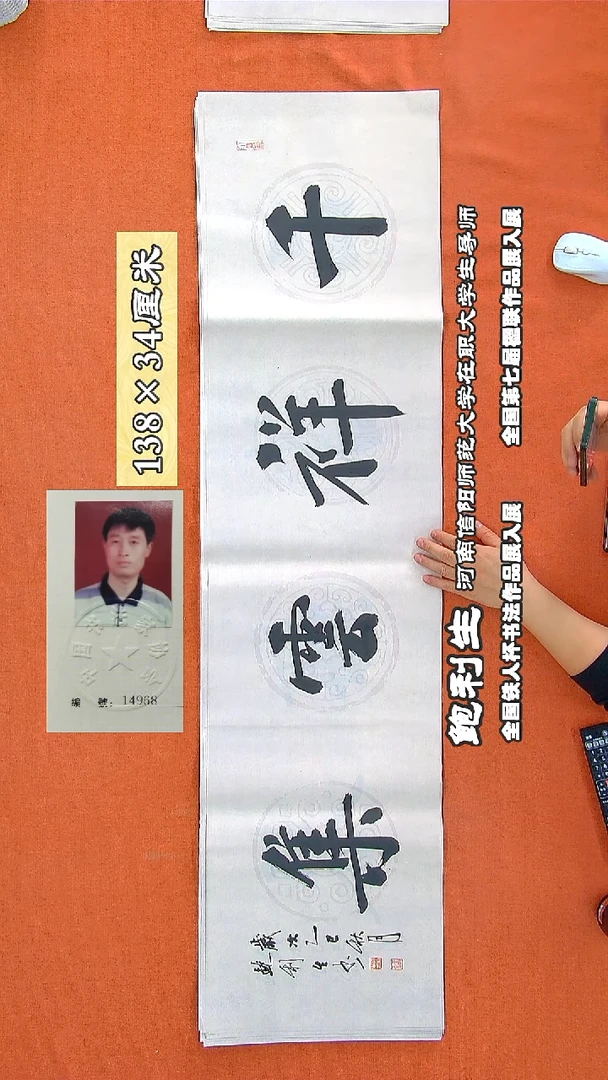 138×34厘米
编号：14968
千祥雲集
歲次乙巳秋月
鮑利生书
鲍利生 河南信阳师范大学在职大学生导师
全国铁人杯书法作品展入展 全国第七届楹联作品展入展